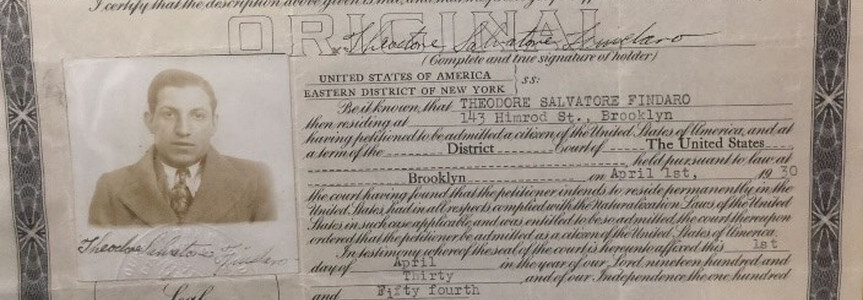 I certify that the description above given is
ORIGINAL
Theodore Salvatore Findaro
(Complete and true signature of holder)
UNITED STATES OF AMERICA
EASTERN DISTRICT OF NEW YORK
ss:
Be it known, that THEODORE SALVATORE FINDARO
then residing at 143 Himrod St., Brooklyn
having petitioned to be admitted a citizen of the United States of America, and at
a term of the District Court of The United States
held pursuant to law at
Brooklyn on April 1st, 19 30
the court having found that the petitioner intends to reside permanently in the
United States, had in all respects complied with the Naturalization Laws of the United
States in such case applicable, and was entitled to be so admitted, the court thereupon
ordered that the petitioner be admitted as a citizen of the United States of America.
In testimony whereof the seal of the court is hereunto affixed this 1st
day of April in the year of our Lord nineteen hundred and
Thirty and of our Independence the one hundred
and Fifty fourth
Theodore Salvatore Findaro
Seal